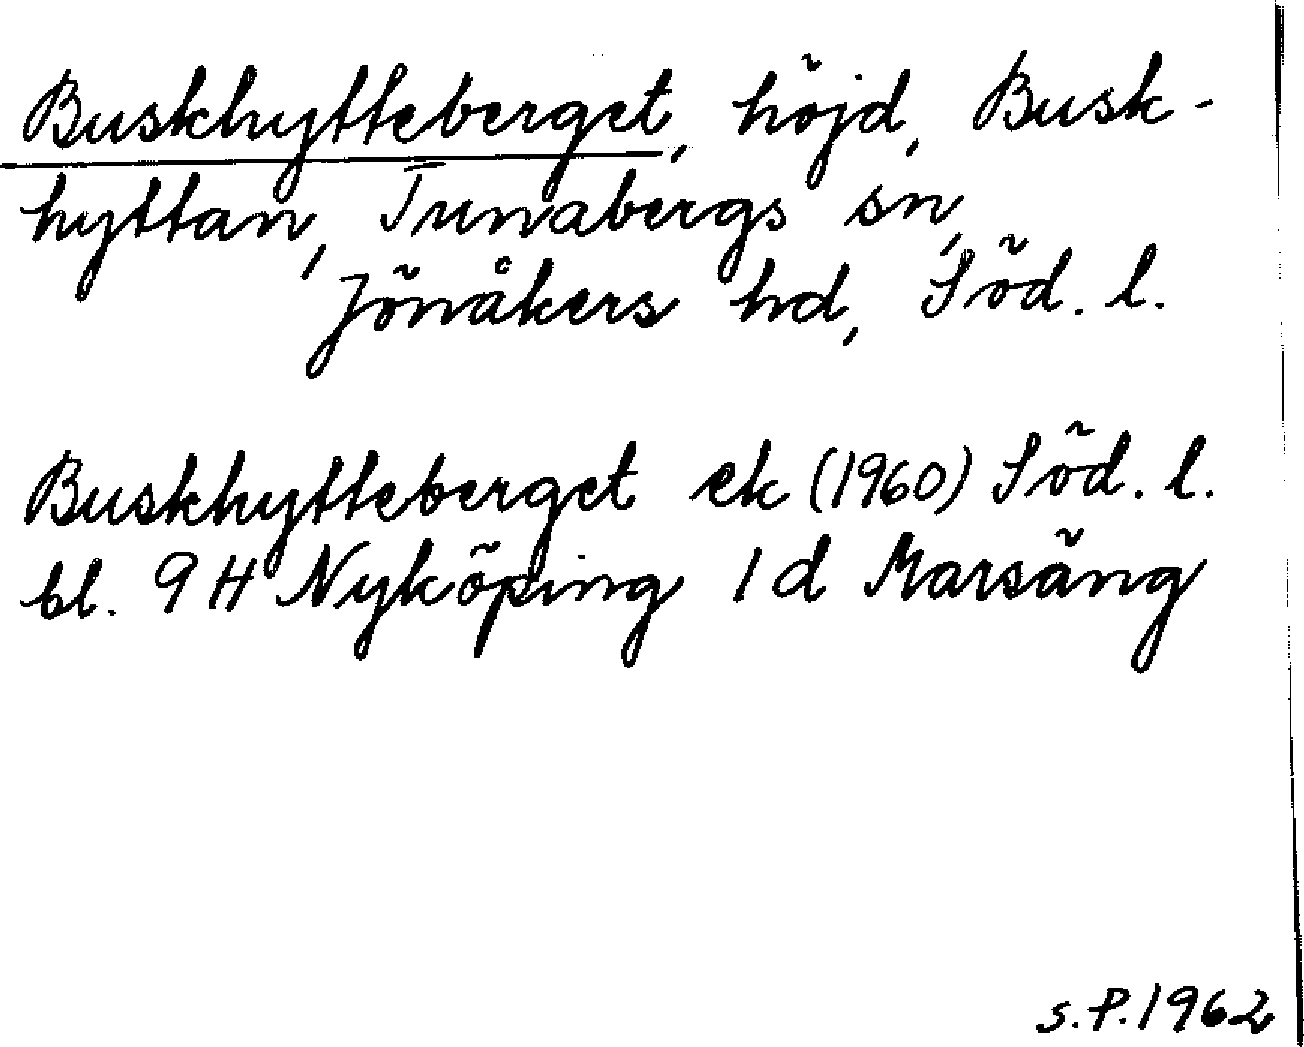 Buskhytteberget, höjd, Busk-
hyttan, Tunabergs sn,
Jönåkers hd, Söd. l.
Buskhytteberget ek (1960) Söd. l.
bl. 9 H Nyköping 1 d Marsäng
S.P. 1962